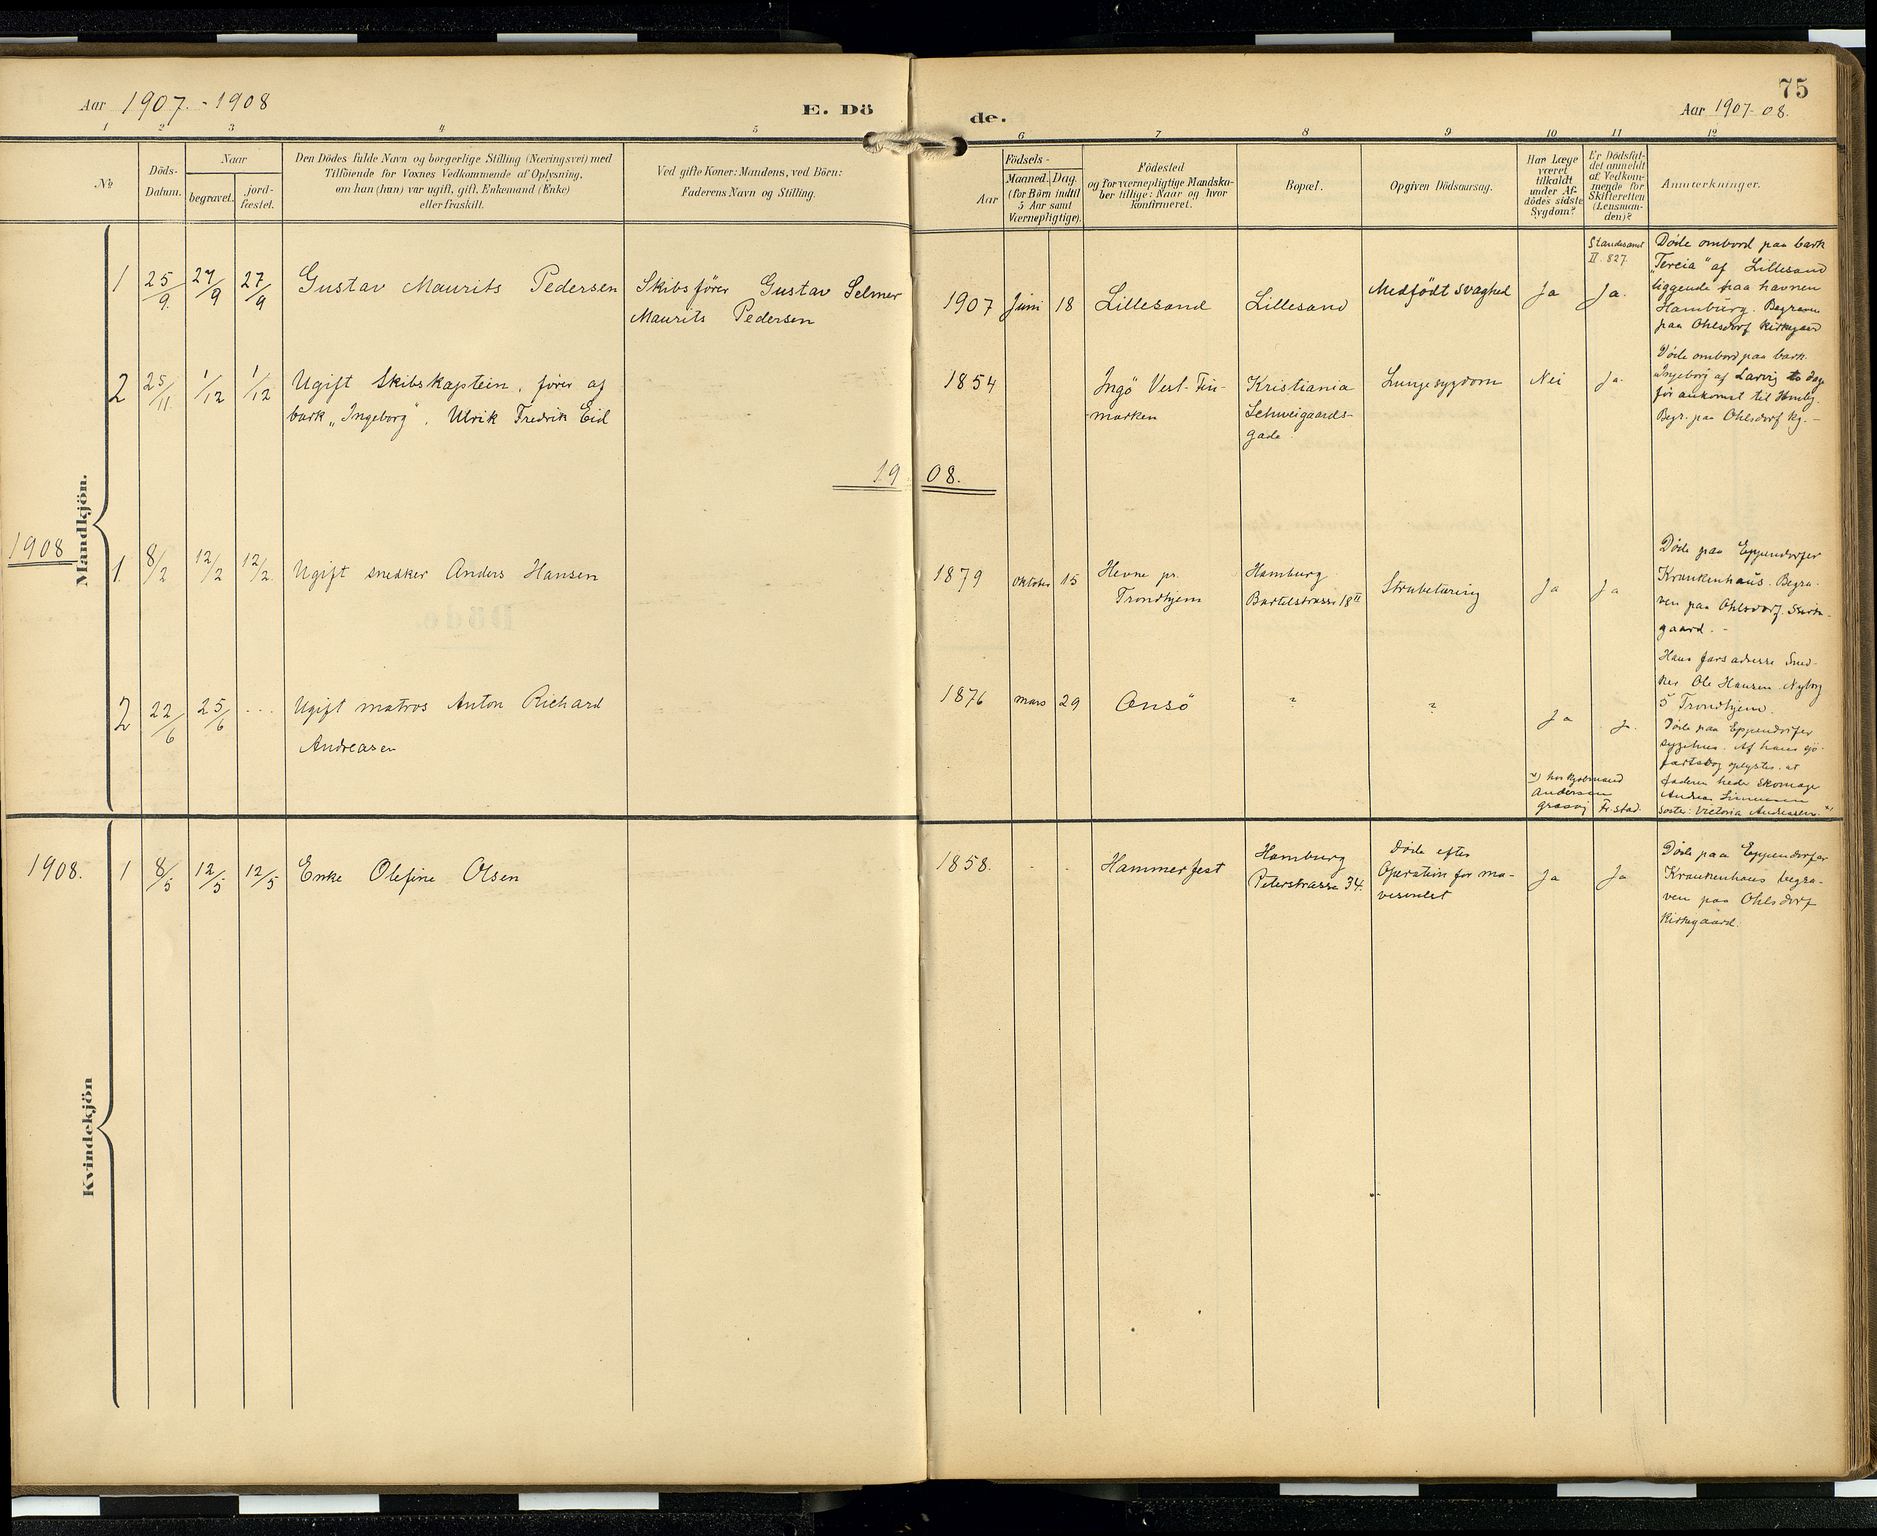 Aar 1907.-1908
E. Dö
de.
75
Aar 1907-08.
1 2 3 4 5 6 7 8 9 10 11 12
No
Döds-
Datum.
Naar
begravet.
jord-
fæstet.
Den Dödes fulde Navn og borgerlige Stilling (Næringsvei) med
Tilföiende for Voxnes Vedkommende af Oplysning,
om han (hun) var ugift, gift, Enkemand (Enke)
eller fraskilt.
Ved gifte Koner: Mandens, ved Börn:
Faderens Navn og Stilling.
Födsels-
Aar
Maaned. Dag.
(for Börn indtil
5 Aar samt
Værnepligtige).
Födested
og for værnepligtige Mandska-
ber tillige: Naar og hvor
konfirmeret.
Bopæl.
Opgiven Dödsaarsag.
Har Læge
været
tilkaldt
under Af-
dödes sidste
Sygdom?
Er Dödsfal-
det anmeldt
af Vedkom-
mende for
Skifteretten
(Lensman-
den)?
Anmærkninger.
Mandkjön.
1 25/9. 27/9 27/9
Gustav Maurits Pedersen
Skibsfører Gustav Selmer
Maurits Pedersen
1907 Juni 18 Lillesand Lillesand Medfödt svaghed Ja Ja.
Standesamt
II. 827.
Døde ombord paa bark
"Tercia" af Lillesand
liggende paa havnen
Hamburg. Begraven
paa Ohlsdorf Kirkegaard
2 25/11. 1/12 1/12
Ugift Skibskaptein, fører af
bark "Ingeborg", Ulrik Fredrik Eid
1854
Ingö Vest-Fin-
marken
Kristiania
Schweigaards-
gade.
Lungesygdom Nei Ja.
Døde ombord paa bark
"Ingeborg af Larvig to dage
før ankomst til Hmbg.
Begr. paa Ohlsdorf Kg. -
19 08.
1908
1. 8/2 12/2 12/2.
Ugift snedker Anders Hansen
1879 Oktober 15
Hevne pr.
Trondhjem
Hamburg
Bartelstrasse 18 II
Strubetæring Ja Ja
Døde paa Eppendorfer
Krankenhaus. Begra-
ven paa Ohlsdorf. Kirke-
gaard. -
Hans fars adresse Sned-
ker Ole Hansen Nyborg
5 Trondhjem.
2 22/6 25/6 ...
Ugift matros Anton Richard
Andreasen
1876 mars 29 Onsö ? ? Ja Ja.
Døde paa Eppendorfer
sygehus. Af hans sjö-
fartsbog oplystes at
faderen heder Skomager
Andreas
søster: Victoria Andreasen. x)
x) hos Kjøbmand
Andersen
græsvig Fr.stad.
Kvindekjön
1908. 1 8/5 12/5 12/5
Enke Olefine Olsen
1858. - - Hammerfest
Hamburg
Peterstrasse 34.
Døde efter
Operation for ma-
vesvulst
Ja Ja
Døde paa Eppendorfer
Krankenhaus begra-
ven paa Ohlsdorf
Kirkegaard.